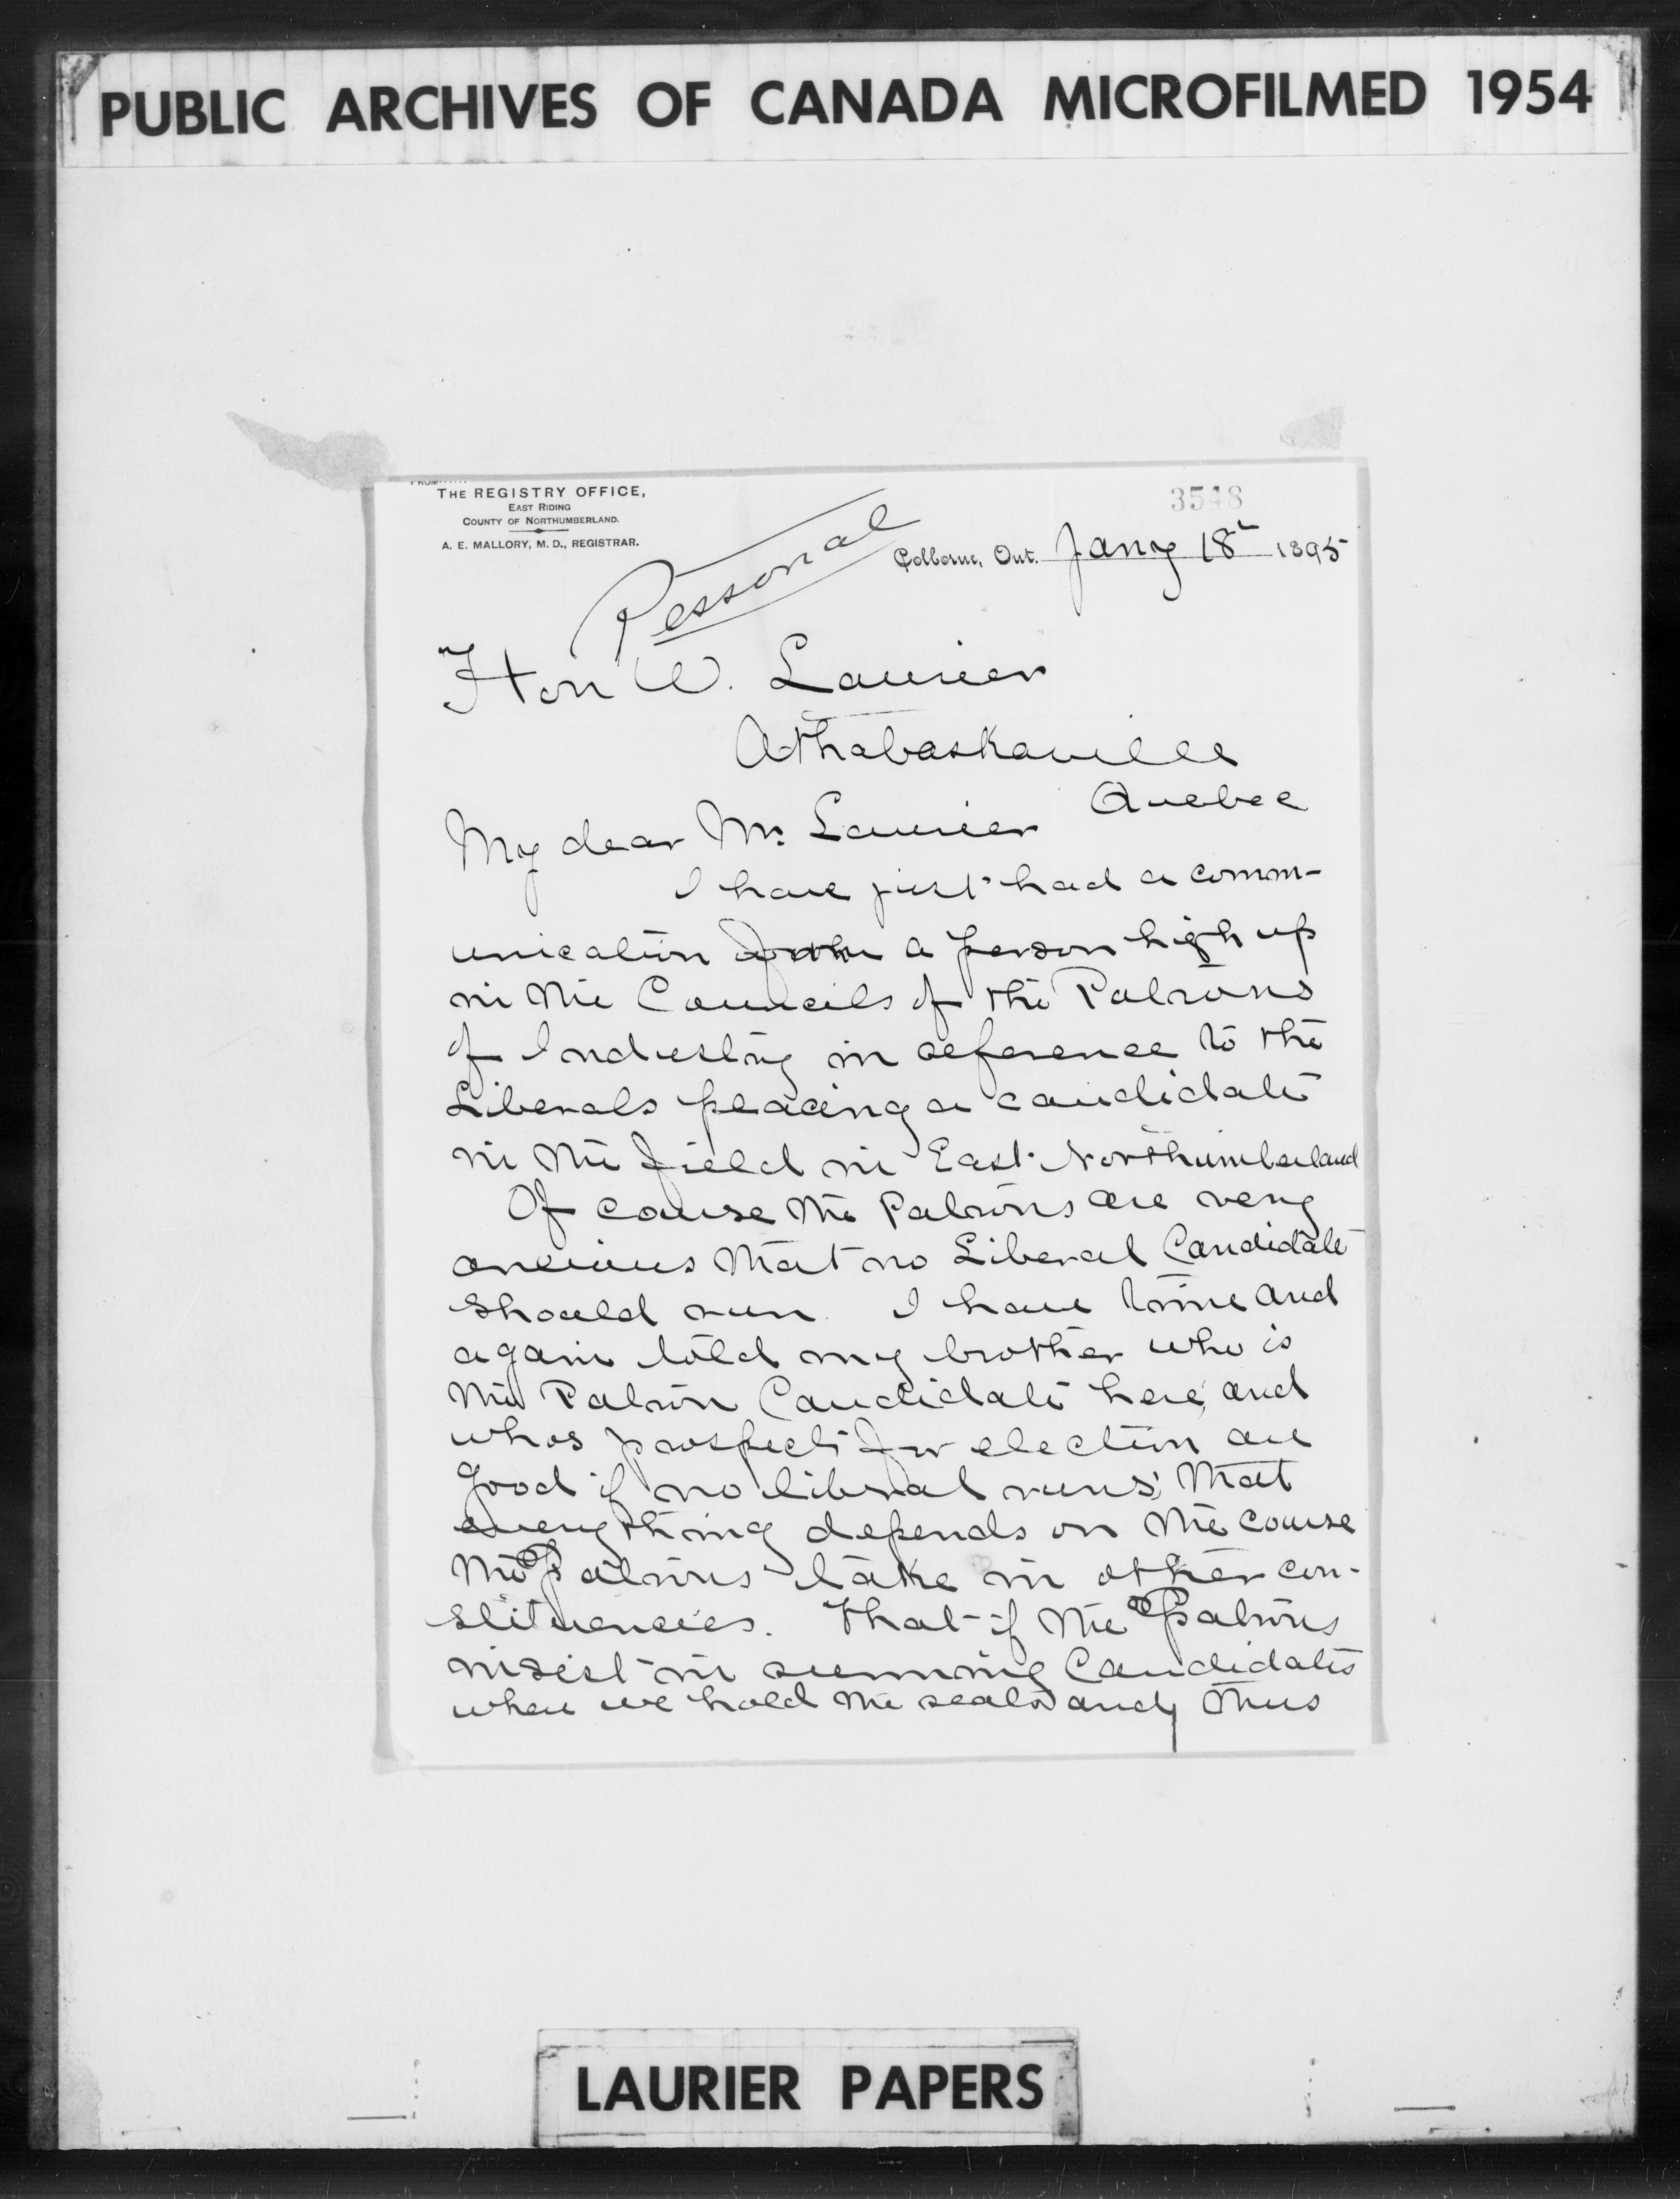 PUBLIC ARCHIVES OF CANADA MICROFILMED 1954
FROM
THE REGISTRY OFFICE,
EAST RIDING
COUNTY OF NORTHUMBERLAND.
A. E. MALLORY, M. D., REGISTRAR.
3548
Personal
Colborne, Ont. Jany 18th 1895
Hon W. Laurier
Athabaskaville
Quebec
My dear Mr. Laurier
I have just had a comm-
unication from a person high up
in the Councils of the Patrons
of Industry in reference to the
Liberals placing a candidate
in the field in East Northumberland
Of course the Patrons are very
anxious that no Liberal Candidate
should run. I have time and
again told my brother who is
the Patron Candidate here, and
whos prospects for election are
good if no liberal runs, that
everything depends on the course
the Patrons take in other con-
stituencies. That if the Patrons
insist in running Candidates
where we hold the seats and thus
LAURIER PAPERS